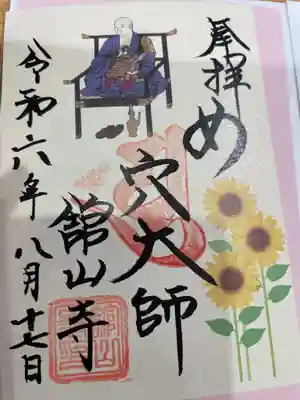 奉拝
め穴大師
舘山寺
令和六年八月十七日